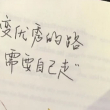 变优秀的路
需要自己走"